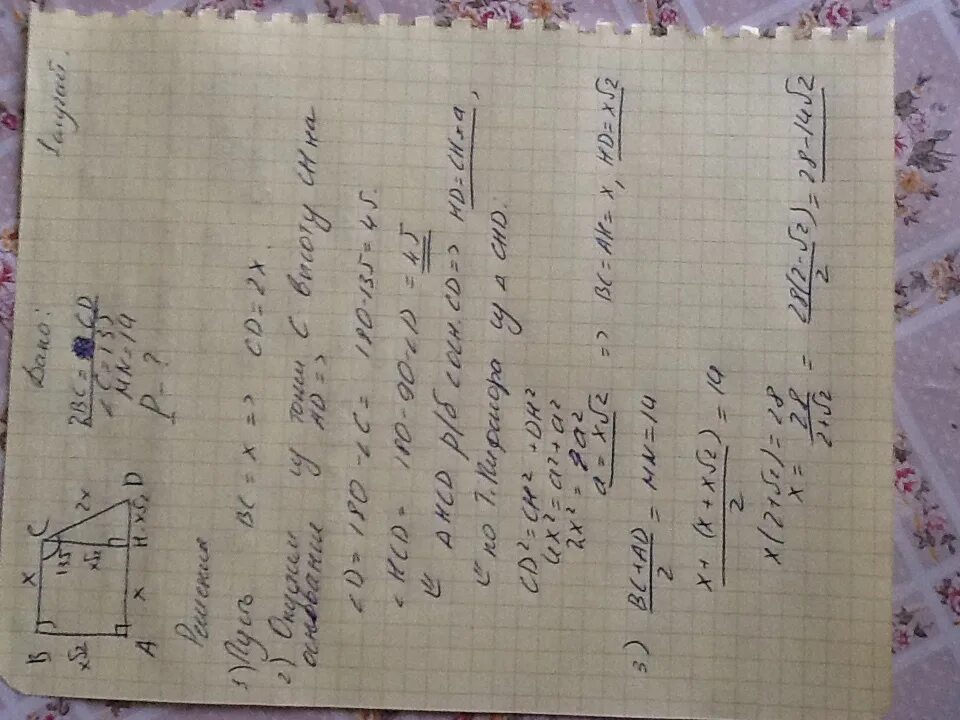 Дано:
2BC = CD
∠C = 135
MN = 14
P - ?
B x C
135 2x
x√2 x√2
A x H x√2 D
Решение
1) Пусть BC = x => CD = 2x
2) Опустим из точки C высоту CH на
основание AD =>
∠D = 180 - ∠C = 180 - 135 = 45.
∠HCD = 180 - 90 - ∠D = 45
△HCD р/б с осн. CD => HD = CH = a,
по т. Пифагора из △ CHD.
CD² = CH² + DH²
4x² = a² + a²
2x² = a²
a = x√2 => BC = AH = x, HD = x√2
3) BC + AD / 2 = MN = 14
x + (x + x√2) / 2 = 14
x(2+√2) = 28
x = 28 / 2+√2 = 28(2-√2) / 2 = 28 - 14√2